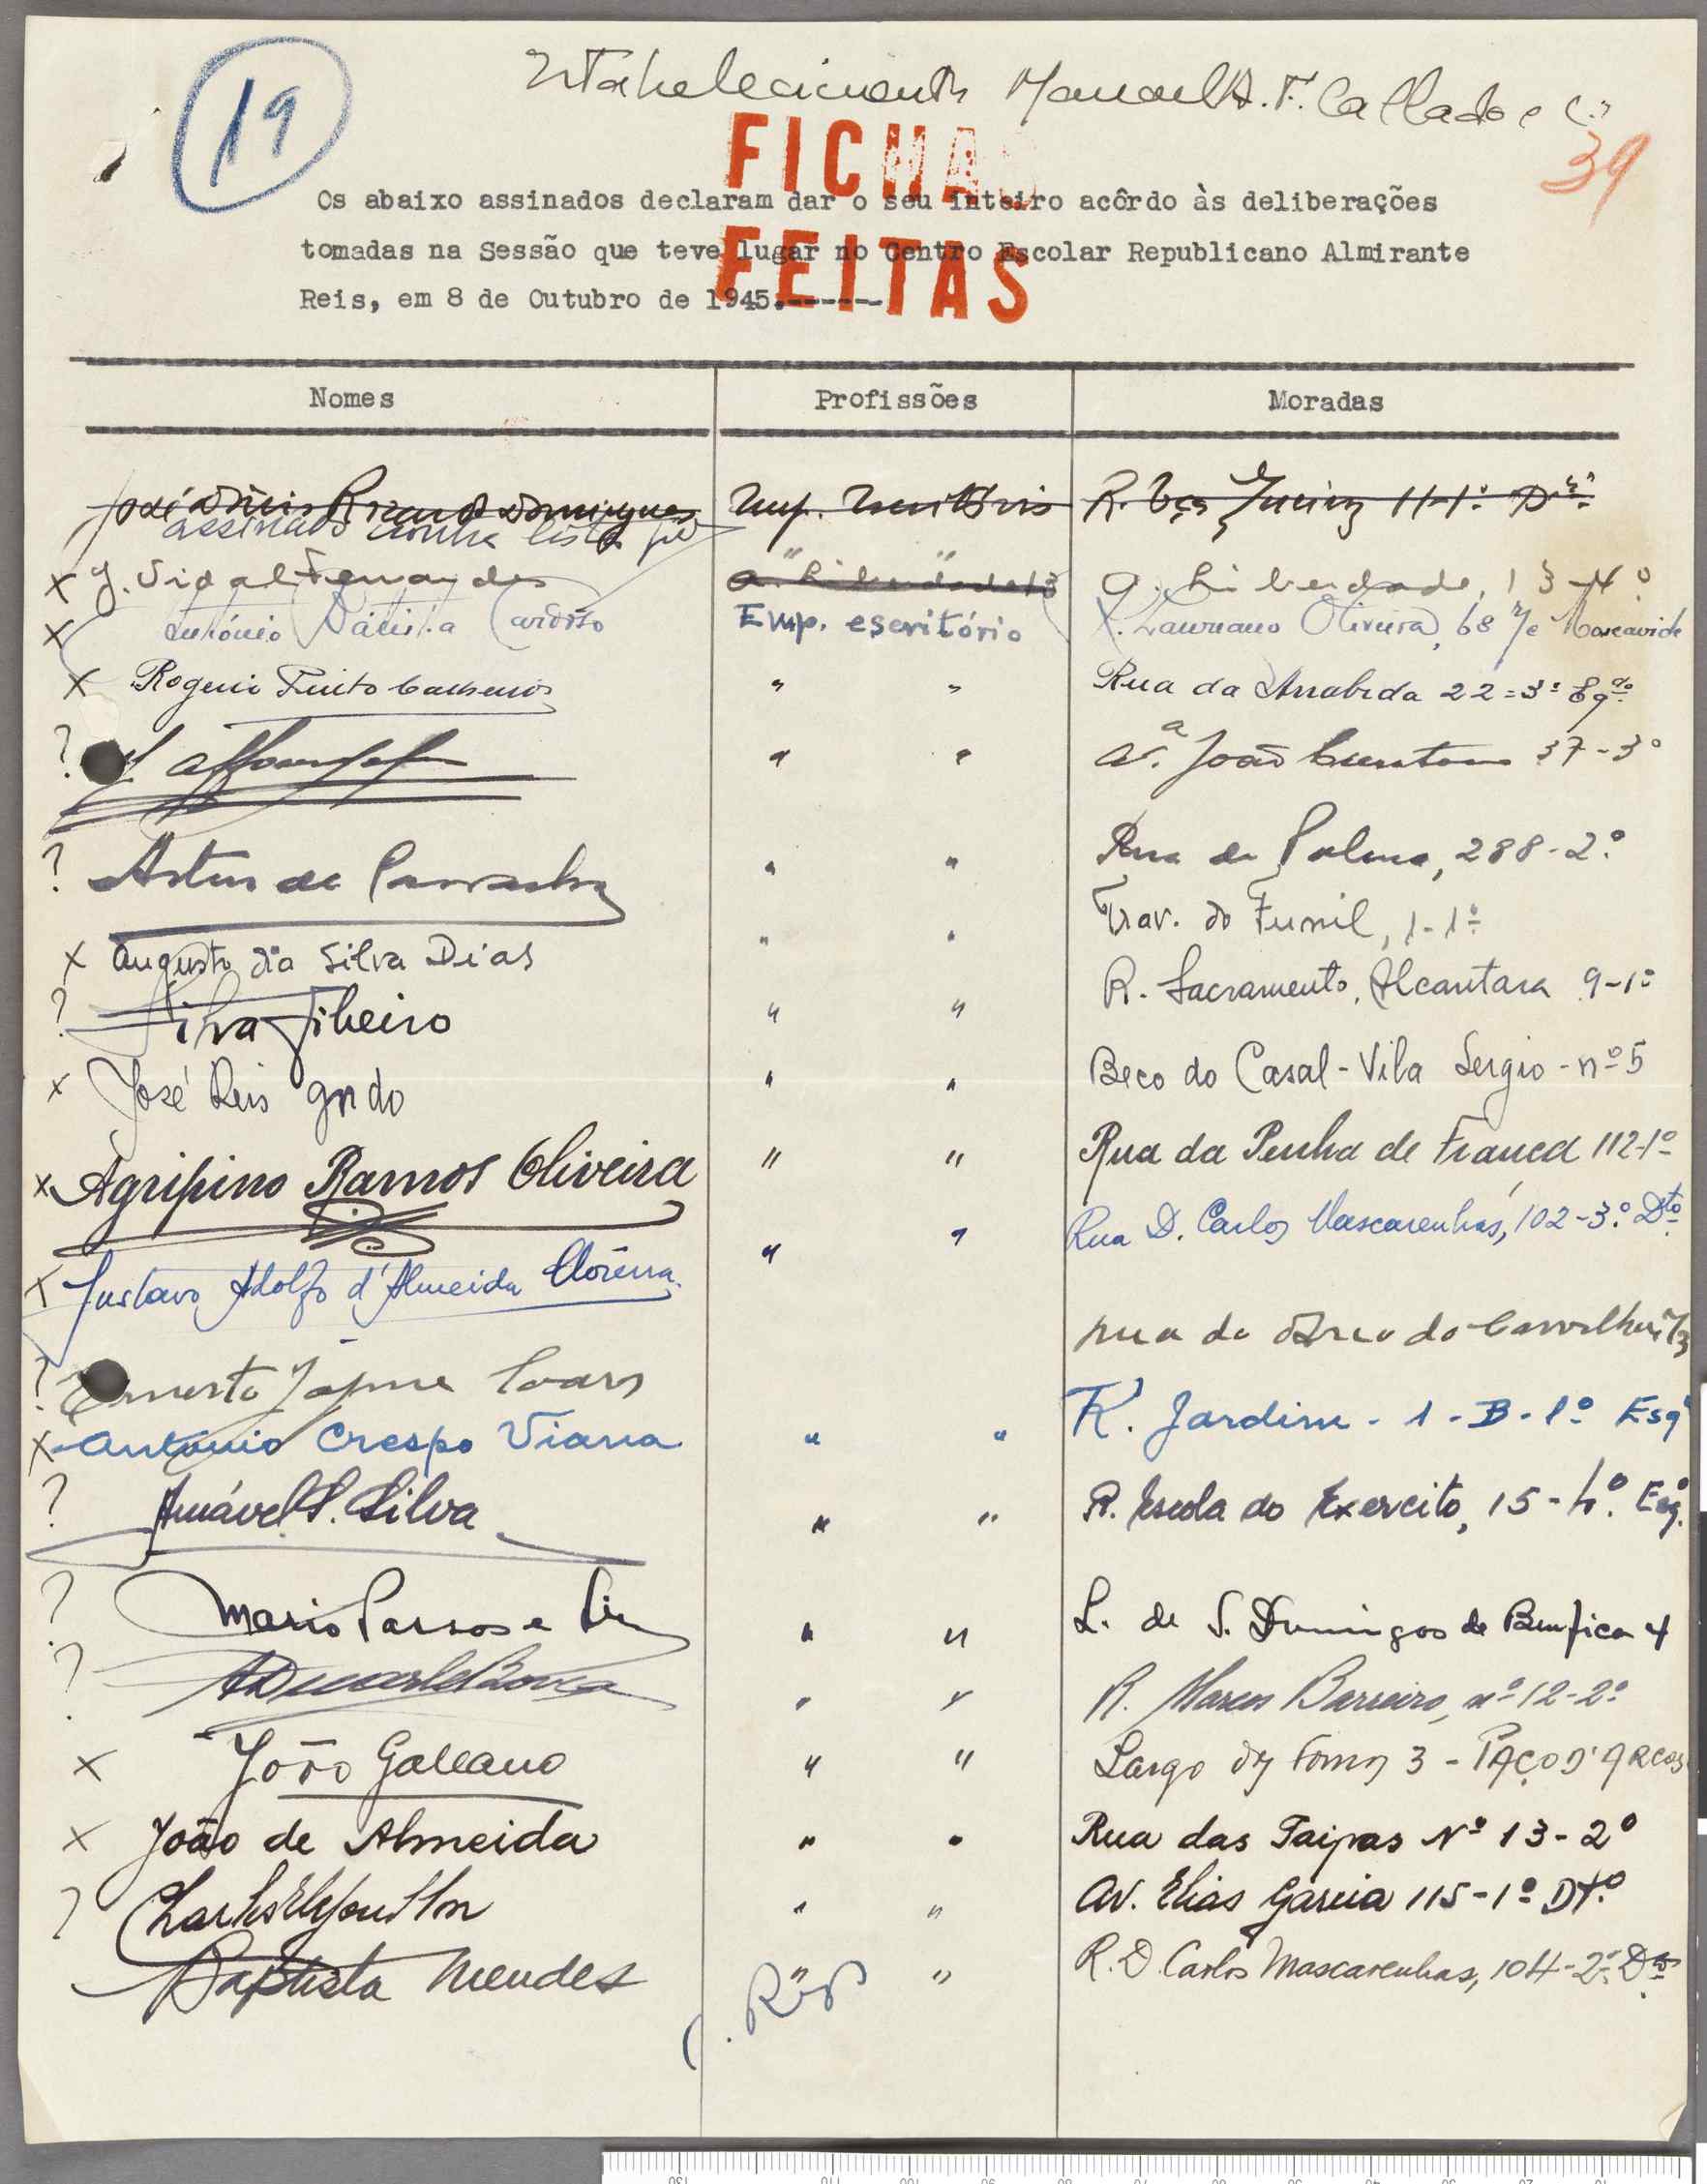 19
Estabelecimentos Manuel A. F. Callado e C.ª
39
FICHAS
FEITAS
Os abaixo assinados declaram dar o seu inteiro acôrdo às deliberações
tomadas na Sessão que teve lugar no Centro Escolar Republicano Almirante
Reis, em 8 de Outubro de 1945.------
Nomes Profissões Moradas
José Ricardo Domingues Emp. Escritório R. 11-1º Dtº
assinado
x J. Vidal Fernandes " " a. Liberdade, 13-4º
x António Batista Cardoso Emp. escritório R. Laureano Oliveira, 68 Moscavide
x Rogerio Pinto " " Rua da Arrabida 22=3º Esqdo
? " " Av.ª João 37-3º
? Artur de " " Rua da Palma, 288-2º
x Augusto da Silva Dias " " Trav. do Funil, 1-1º
? Silva Ribeiro " " R. Sacramento, Alcantara 9-1º
x José Reis " " Beco do Casal-Vila Sergio-nº5
x Agripino Ramos Oliveira " " Rua da Penha de França 112-1º
x Gustavo Adolfo d'Almeida " " Rua D. Carlos Mascarenhas, 102-3º Dto
? Ernesto Jayme Soares rua do Arco do Carvalhão
x António Crespo Viana " " R. Jardim - 1-B-1º Esq
? Amável S. Silva " " R. Escola do Exercito, 15-4º. Esq.
? Mario Passos e " " L. de S. Domingos de Benfica 4
? " " R. Barreiro, nº 12-2º
x João Galeano " " Largo 3 - PAÇO D'ARCOS
x João de Almeida " " Rua das Taipas Nº 13-2º
? " " Av. Elias Garcia 115-1º Dtº
Baptista Mendes " " R. D. Carlos Mascarenhas, 104-2º Dto